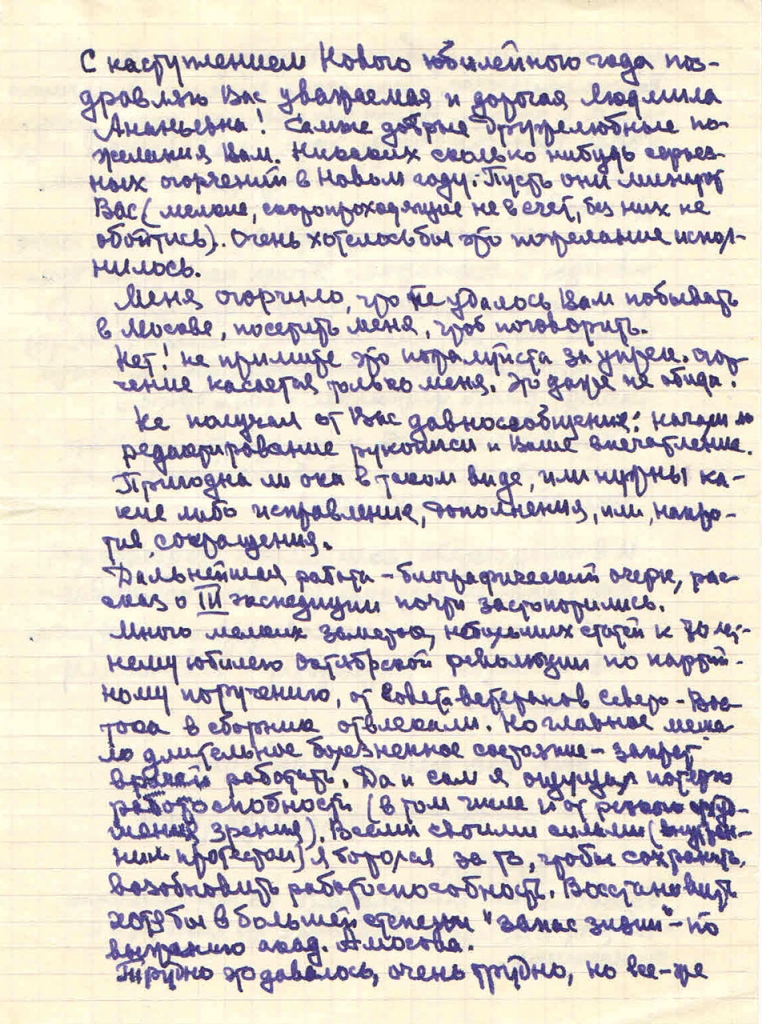 С наступлением Нового юбилейного года поз-
дравляю Вас уважаемая и дорогая Людмила
Ананьевна! Самые добрые дружелюбные по-
желания Вам. Никаких сколько нибудь серьез-
ных огорчений в Новом году. Пусть они минуют
Вас (мелкие, скоропроходящие не в счет, без них не
обойтись). Очень хотелось бы это пожелание испол-
нилось.
Меня огорчило, что не удалось Вам побывать
в Москве, посетить меня, чтоб поговорить.
Нет! не примите это пожалуйста за упрек. Огор-
чение касается только меня. Это даже не обида.
Не получал от Вас давно сообщения: начали ль
редактирование рукописи и Ваше впечатление.
Пригодна ли она в таком виде, или нужны ка-
кие либо исправление, дополнения, или, напро-
тив, сокращения.
Дальнейшая работа - биографический очерк, рас-
сказ о III экспедиции почти застопорились.
Много мелких заметок, небольших статей к 70 лет-
нему юбилею Октябрской революции по партий-
ному поручению, от Совета ветеранов Северо-Вос-
тока в сборник отвлекали. Но главное меша-
ло длительное болезненное состояние - запрет
врачей работать. Да и сам я ощущал потерю
работоспособности (в том числе и от резкого
зрения). Всеми своими силами (внутрен-
ним протестом) я боролся за то, чтобы сохранить,
возобновить работоспособность. Восстановить
хотя бы в большей степени "запас жизни" - по
выражению акад. Амосова.
Трудно это давалось, очень трудно, но все-же